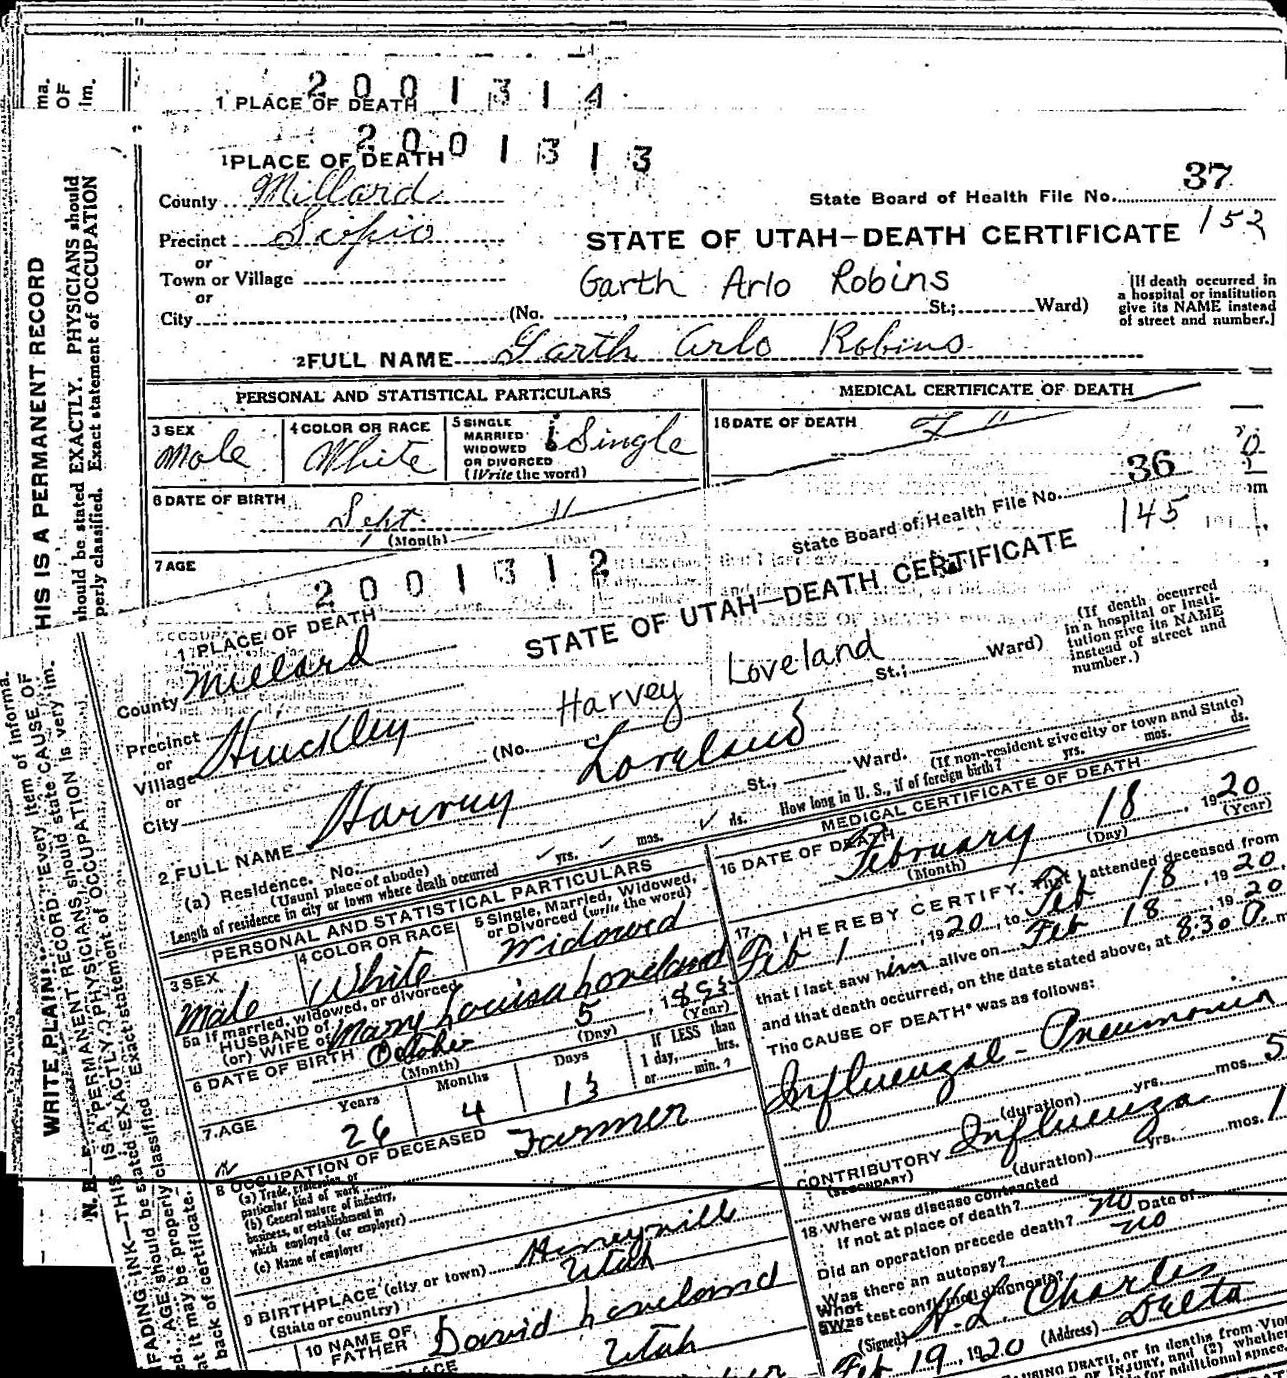 ma.
OF
im.
2001314
1 PLACE OF DEATH
2001313
1 PLACE OF DEATH
County Millard
State Board of Health File No. 37
Precinct Scipio
STATE OF UTAH—DEATH CERTIFICATE 152
or
Town or Village
Garth Arlo Robins
or
City (No. St.; Ward)
[If death occurred in
a hospital or institution
give its NAME instead
of street and number.]
2 FULL NAME Garth Arlo Robins
PERSONAL AND STATISTICAL PARTICULARS
MEDICAL CERTIFICATE OF DEATH
3 SEX
Male
4 COLOR OR RACE
White
5 SINGLE
MARRIED
WIDOWED
OR DIVORCED
(Write the word)
Single
16 DATE OF DEATH
6 DATE OF BIRTH
Sept. 11
(Month) (Day) (Year)
7 AGE
HIS IS A PERMANENT RECORD
should be stated EXACTLY. PHYSICIANS should
perly classified. Exact statement of OCCUPATION
2001312
State Board of Health File No. 36
145
1 PLACE OF DEATH
STATE OF UTAH—DEATH CERTIFICATE
County Millard
Precinct Hinckley
or
Village
or
City
Harvey Loveland
(No. St.; Ward)
(If death occurred
in a hospital or insti-
tution give its NAME
instead of street and
number.)
2 FULL NAME Harvey Loveland
(a) Residence. No. St., Ward.
(Usual place of abode)
(If non-resident give city or town and State)
Length of residence in city or town where death occurred yrs. mos. ds. How long in U. S., if of foreign birth? yrs. mos. ds.
PERSONAL AND STATISTICAL PARTICULARS
MEDICAL CERTIFICATE OF DEATH
3 SEX
Male
4 COLOR OR RACE
White
5 Single, Married, Widowed,
or Divorced (write the word)
Widowed
5a If married, widowed, or divorced
HUSBAND of
(or) WIFE of Mary Louisa Loveland
6 DATE OF BIRTH October 5, 1893
(Month) (Day) (Year)
7 AGE
Years
26
Months
4
Days
13
If LESS than
1 day, hrs.
or min.?
8 OCCUPATION OF DECEASED Farmer
(a) Trade, profession, or
particular kind of work
(b) General nature of industry,
business, or establishment in
which employed (or employer)
(c) Name of employer
9 BIRTHPLACE (city or town)
(State or country) Utah
10 NAME OF
FATHER David Loveland
Utah
16 DATE OF DEATH
February 18, 1920
(Month) (Day) (Year)
17 I HEREBY CERTIFY, That I attended deceased from
Feb 1, 1920, to Feb 18, 1920
that I last saw him alive on Feb 18, 1920
and that death occurred, on the date stated above, at 8:30 P. m
The CAUSE OF DEATH* was as follows:
Influenzal-Pneumonia
(duration) yrs. mos. 5
CONTRIBUTORY Influenza
(SECONDARY)
(duration) yrs. mos. 1
18 Where was disease contracted
if not at place of death?
Did an operation precede death? no Date of
Was there an autopsy? no
What test confirmed diagnosis?
(Signed) Charles
Feb 19, 1920 (Address) Delta
WRITE PLAINLY
RECORD. Every item of informa.
should state CAUSE OF
OCCUPATION is very im.
N. B.
FADING INK—THIS
PERMANENT RECORD
PHYSICIANS should state
Exact statement of OCCUPATION
AGE should be properly classified
at it may be
back of certificate.